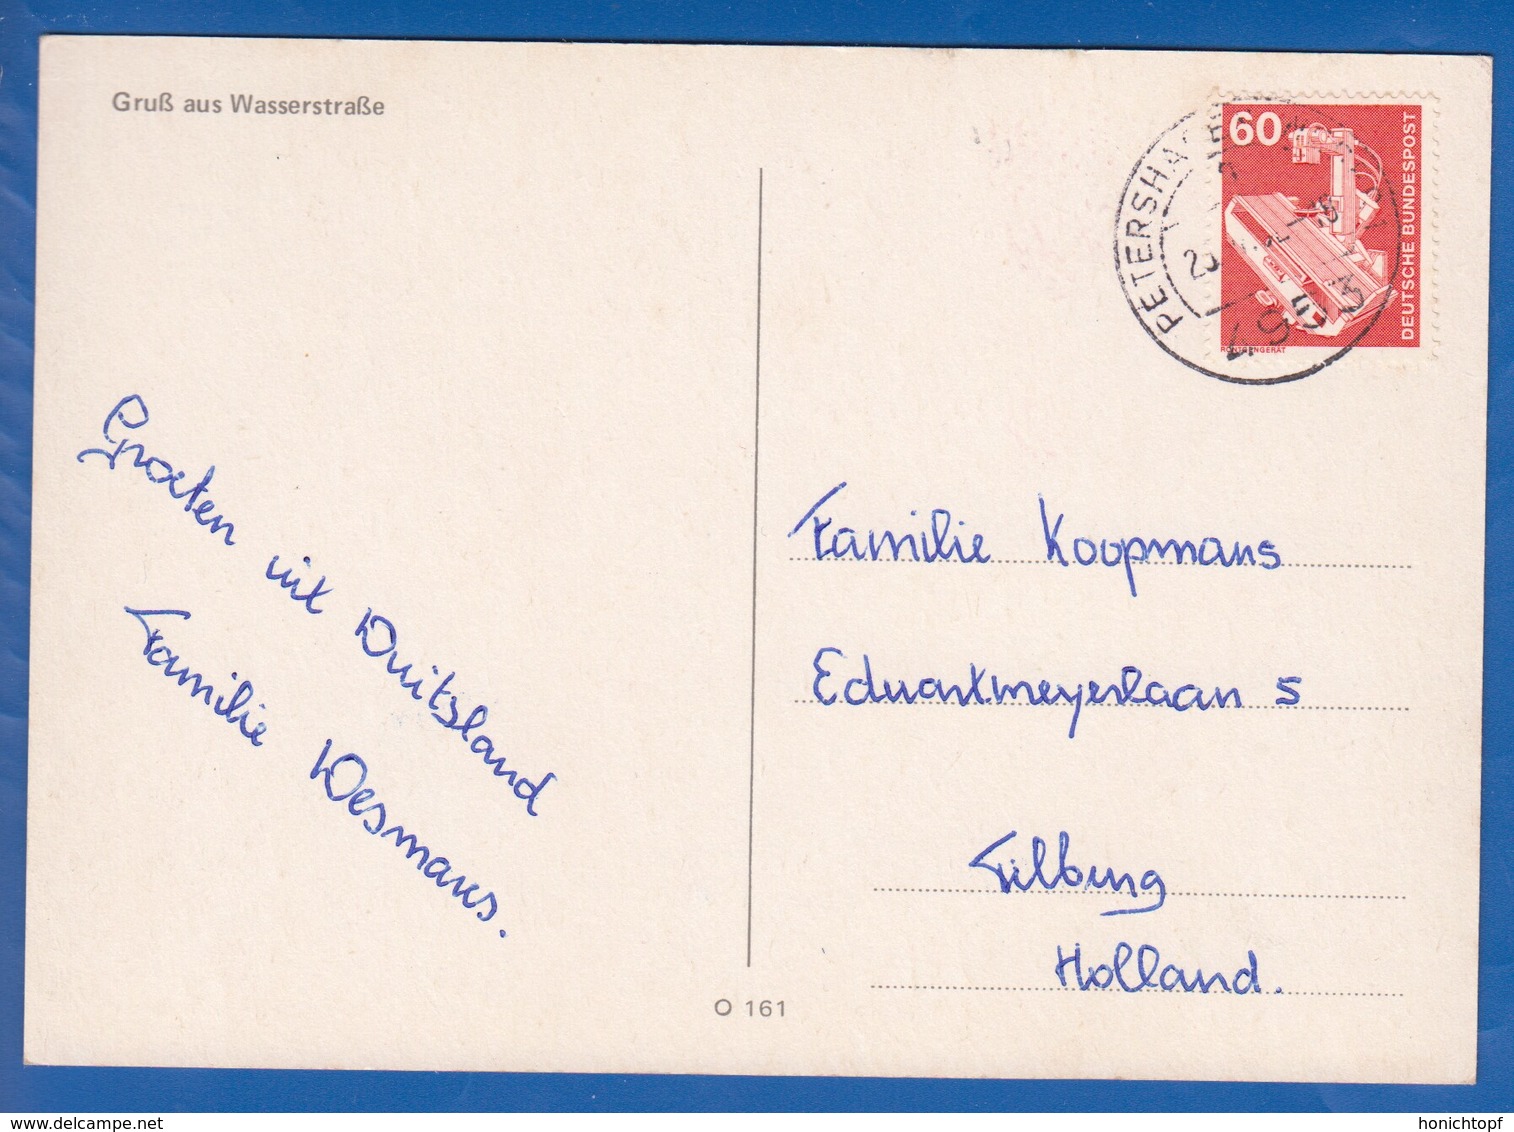 Gruß aus Wasserstraße
60
DEUTSCHE BUNDESPOST
RÖNTGENGERÄT
PETERSHA
4953
Groeten uit Duitsland
Familie Wesmans.
Familie Koopmans
Eduartmeyerlaan 5
Tilburg
Holland.
O 161
honichtopf
www.delcampe.net